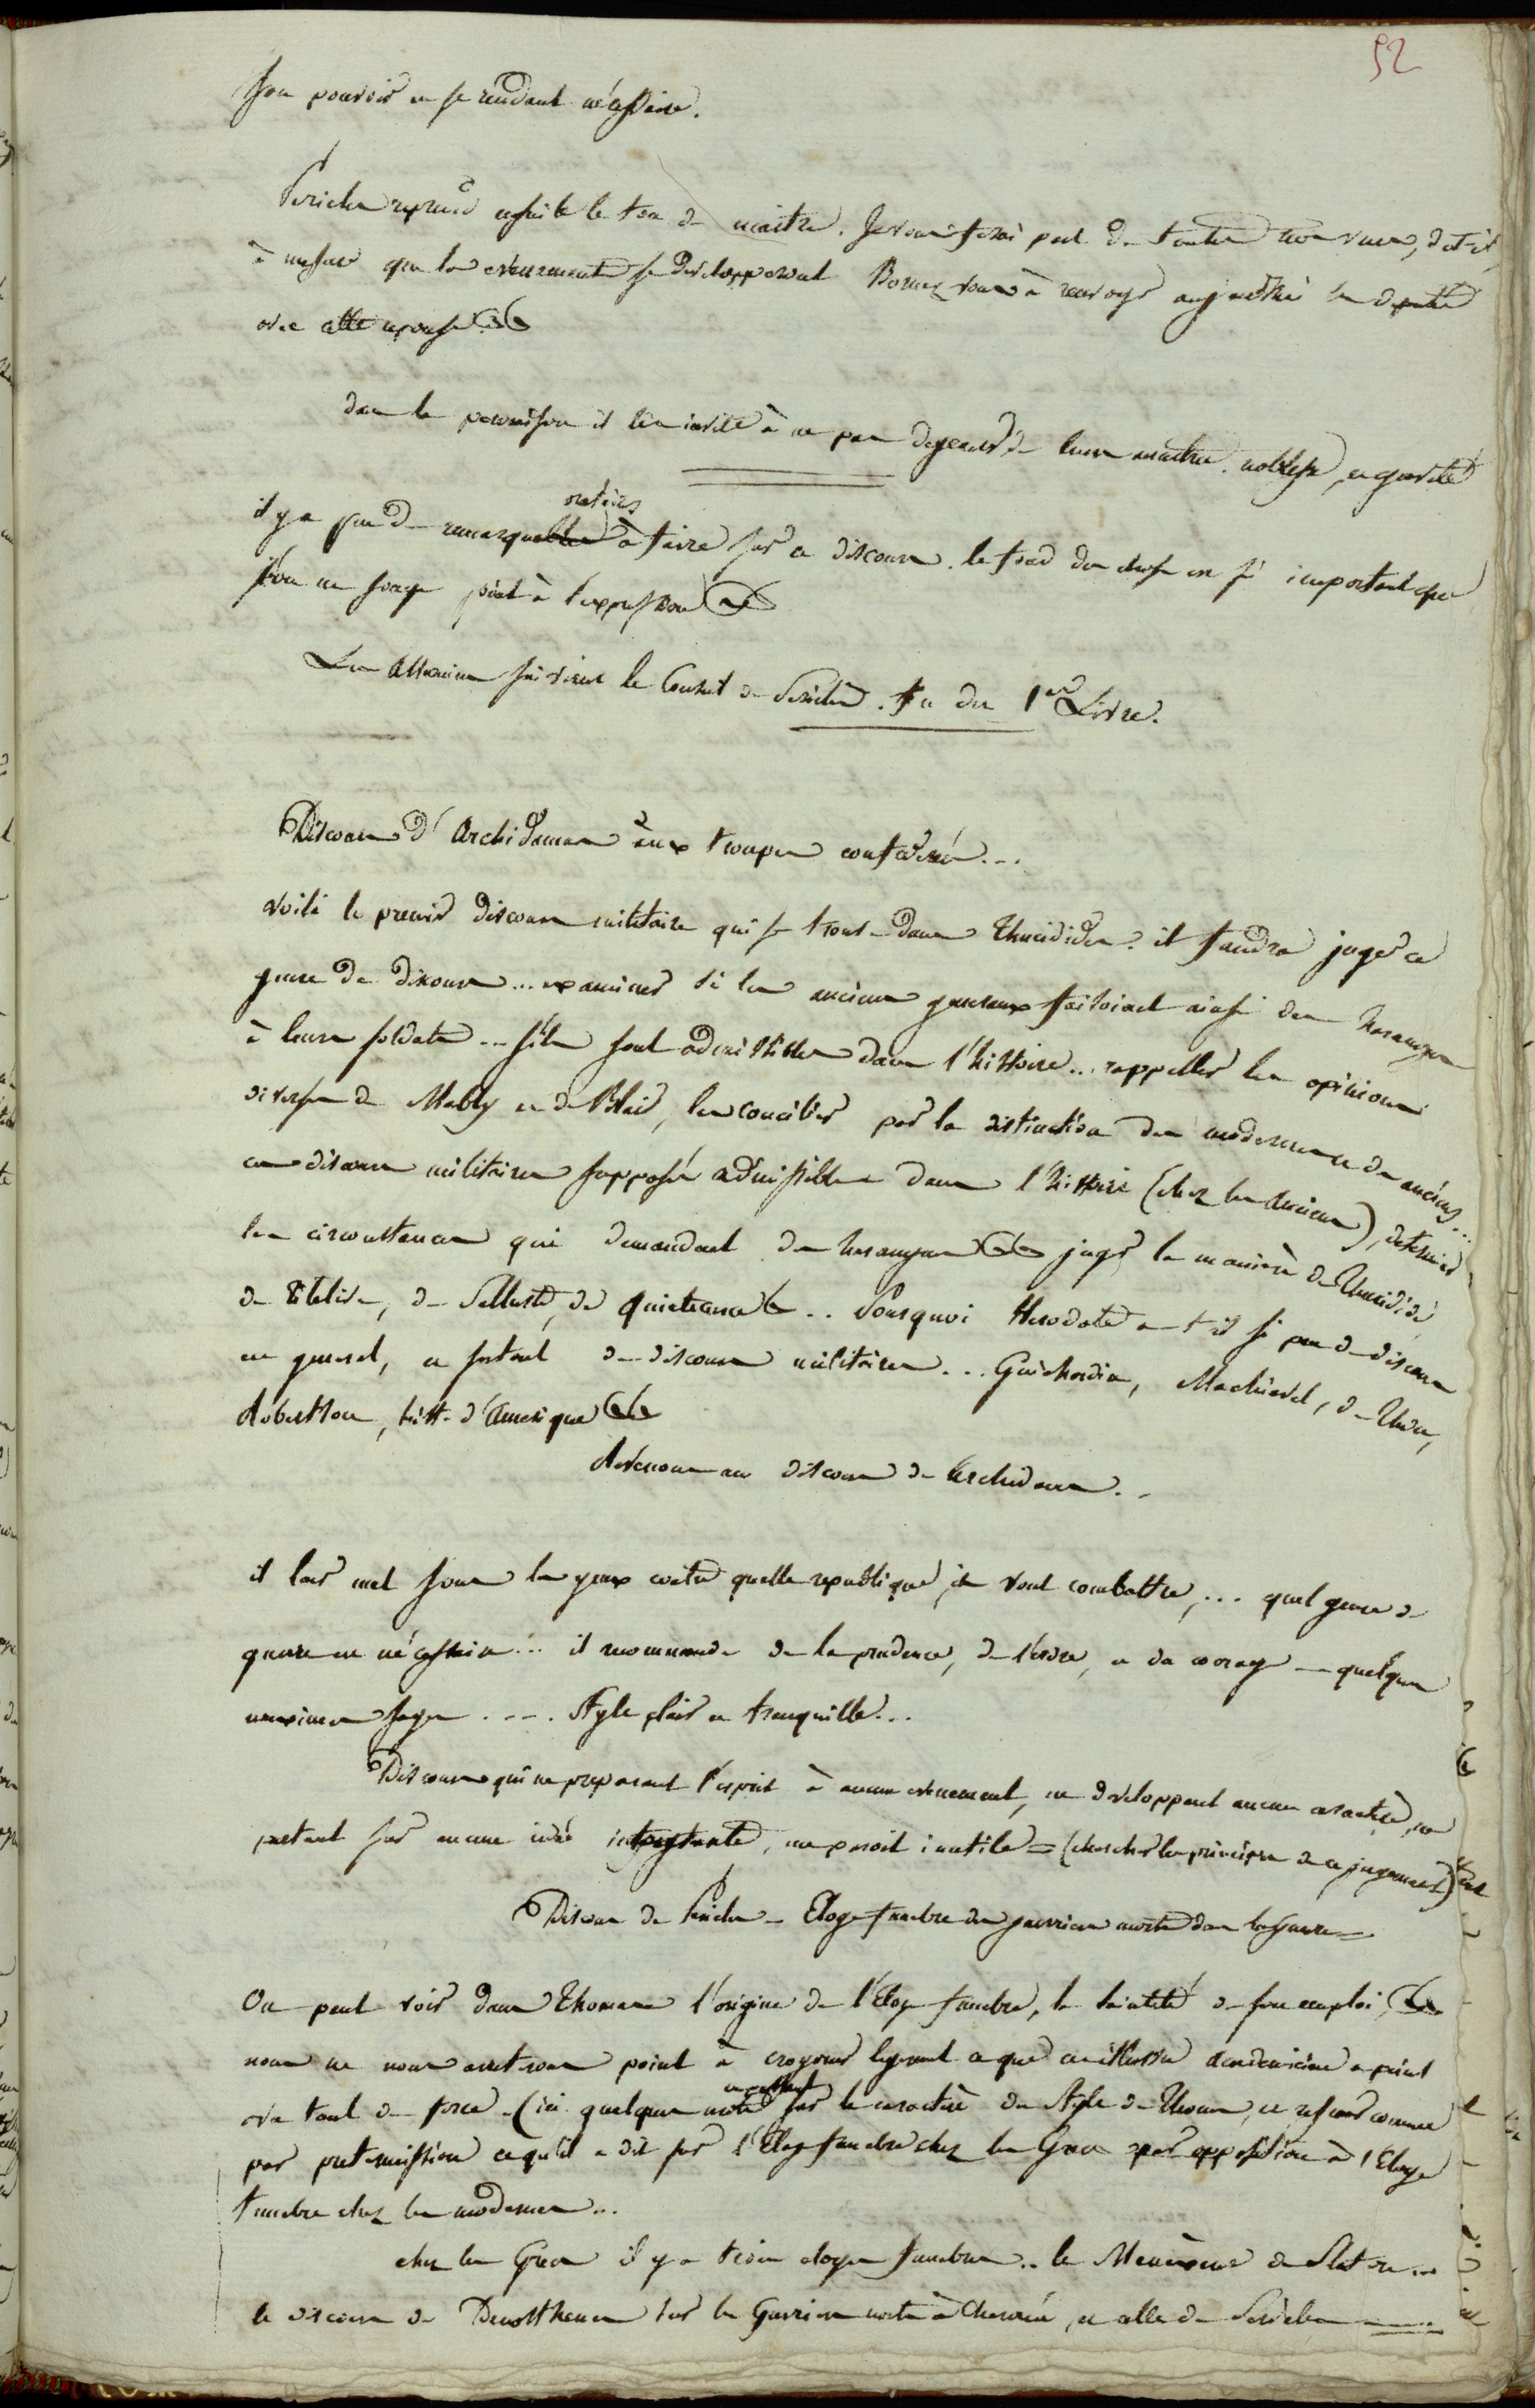 52
son pouvoir en se rendant nécessaire.
Pericles reprend ensuite le ton de maitre. Je vous ferai part de toutes mes vues, dit-il,
à mesure que les evenements se developperont Bornez vous à renvoyer aujourd'hui les deputés
avec cette reponse &&
dans la peroraison il les invite à ne pas degenerer de leurs ancetres. noblesse, et gravité
il y a peu de remarques oratoires à faire sur ce discours. le fond des choses est si important que
l'on ne songe point à l'expression &
Les Atheniens suivirent le Conseil de Pericles. fin du 1er Livre.
Discours d'Archidamas aux troupes confederées...
voilà le premier discours militaire qui se trouve dans Thucidides. il faudra juger ce
genre de discours... examiner si les anciens generaux faisoient ainsi des harangues
à leurs soldats... s'ils sont admissibles dans l'histoire... rappeller les opinions
diverses de Mably et de Blair, les concilier par la distinction des modernes et des anciens...
ces discours militaires supposés admissibles dans l'histoire (chez les anciens), determiner
les circonstances qui demandent des harangues && juger la maniere de Thucidide
de Titelive, de Salluste, de quintecurce &... Pourquoi Herodote a-t-il si peu de discours
en general, et surtout de discours militaires... Guichardin, Machiavel, de Thou,
Robertson, hist. d'Amerique &&
Revenons au discours de Archidamas..
il leur met sous les yeux contre quelle republique ils vont combattre,... quel genre de
guerre est nécessaire... il recommande de la prudence, de l'ordre, et du courage — quelques
maximes sages .... Style clair et tranquille...
Discours qui ne preparant l'esprit à aucun evenement, ne developpant aucun caractère, ne
portant sur aucune idée importante, me paroit inutile = (chercher les principes de ce jugement)
Discours de Pericles — Eloge funebre des guerriers morts dans la Guerre =
On peut voir dans Thomas l'origine de l'Eloge funebre, la sainteté de son emploi, &
nous ne nous arreterons point à crayonner legerement ce que cet illustre academicien a peint
avec tant de force - (ici quelques mots en passant sur le caractère du style de Thomas, et resumer comme
par pretermission ce qu'il a dit sur l'Eloge funebre chez les Grecs par opposition à l'Eloge
funebre chez les modernes...
chez les Grecs il y a trois eloges funebres.. le Menexene de Platon...
le discours de Demosthenes sur les Guerriers morts à Cheronée, et celle de Pericles